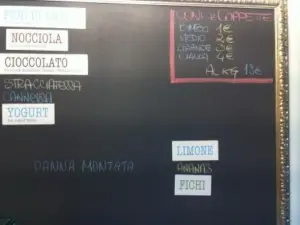 NOCCIOLA
CIOCCOLATO
STRACCIATELLA
YOGURT
PANNA MONTATA
CONI e COPPETTE
1€
MEDIO 2€
GRANDE 3€
4€
AL KG 18€
LIMONE
ANANAS
FICHI